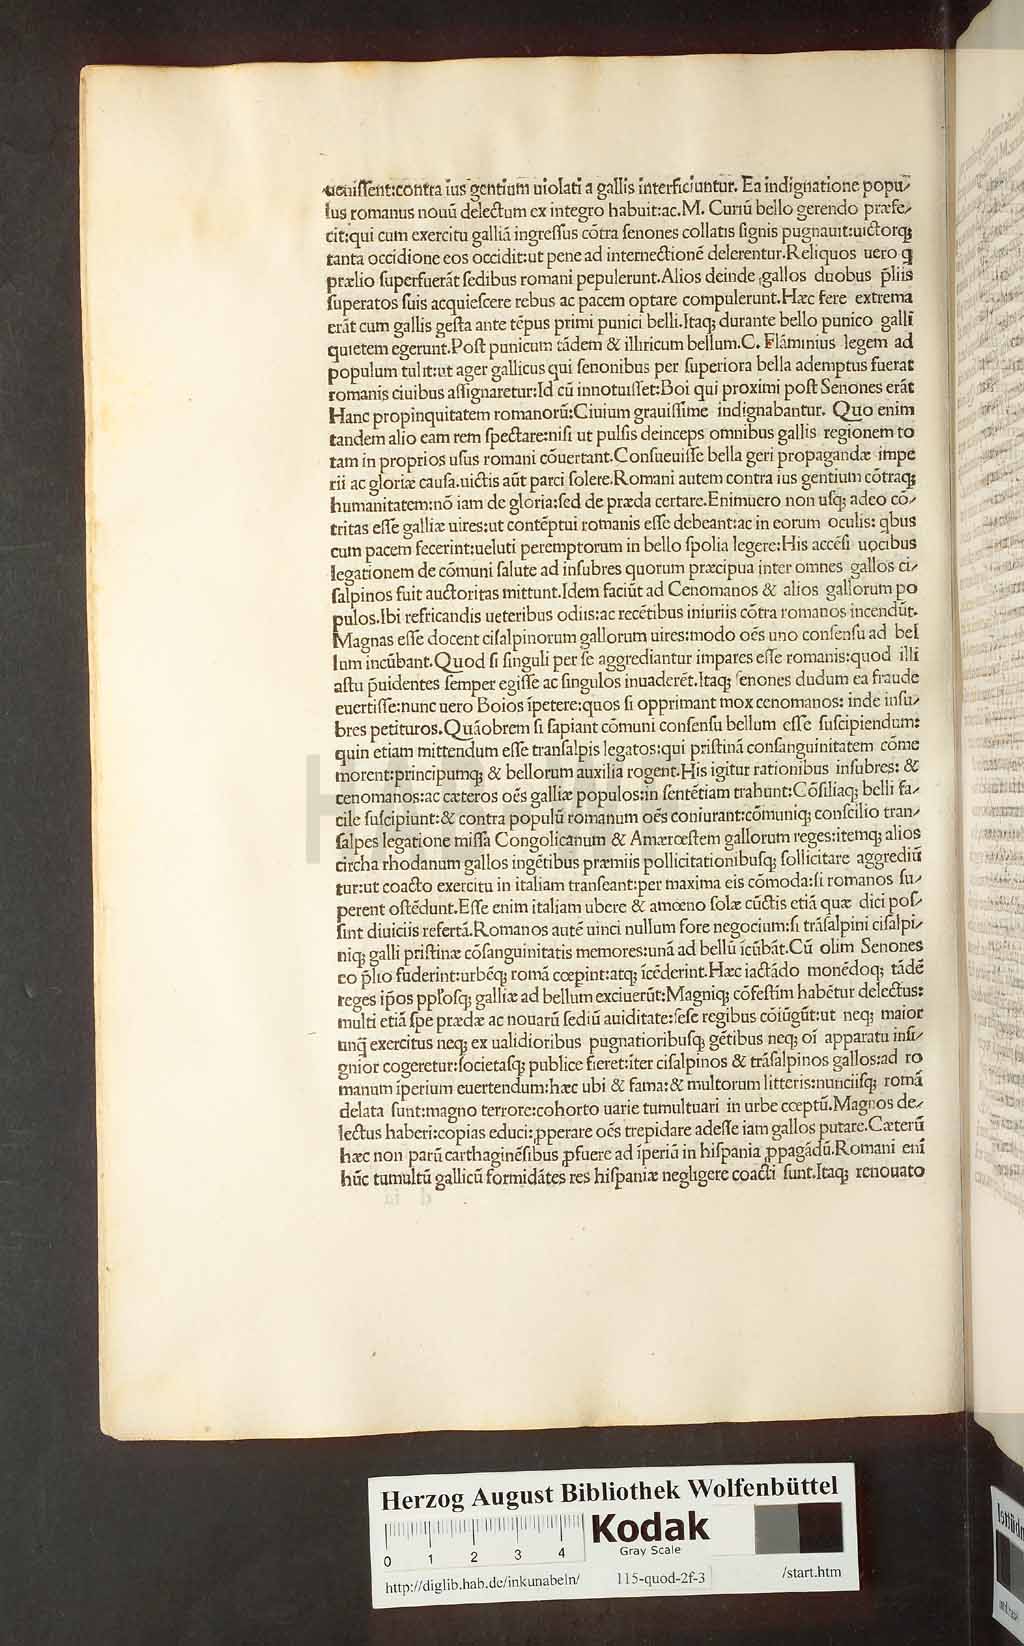 ueniſſent:contra ius gentium uiolati a gallis interficiuntur. Ea indignatione popu⸗
lus romanus nouū delectum ex integro habuit:ac.M. Curiū bello gerendo præfe⸗
cit:qui cum exercitu galliā ingreſſus cōtra ſenones collatis ſignis pugnauit:uictorq;
tanta occidione eos occidit:ut pene ad internectionē delerentur.Reliquos uero q
prælio ſuperfuerāt ſedibus romani pepulerunt.Alios deinde gallos duobus p̄liis
ſuperatos ſuis acquieſcere rebus ac pacem optare compulerunt.Hæc fere extrema
erāt cum gallis geſta ante tēpus primi punici belli.Itaq; durante bello punico galli
quietem egerunt.Poſt punicum tādem & illiricum bellum.C. Flāminius legem ad
populum tulit:ut ager gallicus qui ſenonibus per ſuperiora bella ademptus fuerat
romanis ciuibus aſſignaretur:Id cū innotuiſſet:Boi qui proximi poſt Senones erāt
Hanc propinquitatem romanorū:Ciuium grauiſſime indignabantur. Quo enim
tandem alio eam rem ſpectare:niſi ut pulſis deinceps omnibus gallis regionem to
tam in proprios uſus romani cōuertant.Conſueuiſſe bella geri propagandæ impe
rii ac gloriæ cauſa.uictis aūt parci ſolere.Romani autem contra ius gentium cōtraq;
humanitatem:nō iam de gloria:ſed de præda certare.Enimuero non uſq; adeo cō⸗
tritas eſſe galliæ uires:ut contēptui romanis eſſe debeant:ac in eorum oculis: qbus
cum pacem fecerint:ueluti peremptorum in bello ſpolia legere:His accēſi uocibus
legationem de cōmuni ſalute ad inſubres quorum præcipua inter omnes gallos ci⸗
ſalpinos fuit auctoritas mittunt.Idem faciūt ad Cenomanos & alios gallorum po
pulos.Ibi refricandis ueteribus odiis:ac recētibus iniuriis cōtra romanos incendūt.
Magnas eſſe docent ciſalpinorum gallorum uires:modo oēs uno conſenſu ad bel
lum incūbant.Quod ſi ſinguli per ſe aggrediantur impares eſſe romanis:quod illi
aſtu p̄uidentes ſemper egiſſe ac ſingulos inuaderēt.Itaq; ſenones dudum ea fraude
euertiſſe:nunc uero Boios īpetere:quos ſi opprimant mox cenomanos: inde inſu⸗
bres petituros.Quāobrem ſi ſapiant cōmuni conſenſu bellum eſſe ſuſcipiendum:
quin etiam mittendum eſſe tranſalpis legatos:qui priſtinā conſanguinitatem cōme
morent:principumq; & bellorum auxilia rogent.His igitur rationibus inſubres: &
cenomanos:ac cæteros oēs galliæ populos:in ſentētiam trahunt:Cōſiliaq; belli fa⸗
cile ſuſcipiunt:& contra populū romanum oēs coniurant:cōmuniq; conſcilio tran⸗
ſalpes legatione miſſa Congolicanum & Amærœſtem gallorum reges:itemq; alios
circha rhodanum gallos ingētibus præmiis pollicitationibuſq; ſollicitare aggrediū
tur:ut coacto exercitu in italiam tranſeant:per maxima eis cōmoda:ſi romanos ſu⸗
perent oſtēdunt.Eſſe enim italiam ubere & amœno ſolæ cūctis etiā quæ dici poſ⸗
ſint diuiciis refertā.Romanos autē uinci nullum fore negocium:ſi trāſalpini ciſalpi⸗
niq; galli priſtinæ cōſanguinitatis memores:unā ad bellū īcūbāt.Cū olim Senones
eo p̄lio fuderint:urbēq; romā cœpint:atq; īcēderint.Hæc iactādo monēdoq; tādē
reges ip̄os ppl'oſq; galliæ ad bellum exciuerūt:Magniq; cōfeſtim habētur delectus:
multi etiā ſpe prædæ ac nouarū ſediū auiditate:ſeſe regibus cōiūgūt:ut neq; maior
unq̄ exercitus neq; ex ualidioribus pugnatioribuſq; gētibus neq; oī apparatu inſi⸗
gnior cogeretur:ſocietaſq; publice fieret:iter ciſalpinos & trāſalpinos gallos:ad ro
manum īperium euertendum:hæc ubi & fama:& multorum litteris:nunciiſq; romā
delata ſunt:magno terrore:cohorto uarie tumultuari in urbe cœptū.Magnos de⸗
lectus haberi:copias educi:ꝓperare oēs trepidare adeſſe iam gallos putare.Cæterū
hæc non parū carthaginēſibus ꝓfuere ad īperiā in hiſpania ꝓpagādū.Romani enī
hūc tumultū gallicū formidātes res hiſpaniæ negligere coacti ſunt.Itaq; renouato
Herzog August Bibliothek Wolfenbüttel
0 1 2 3 4
Kodak
Gray Scale
http://diglib.hab.de/inkunabeln/ 115-quod-2f-3 /start.htm